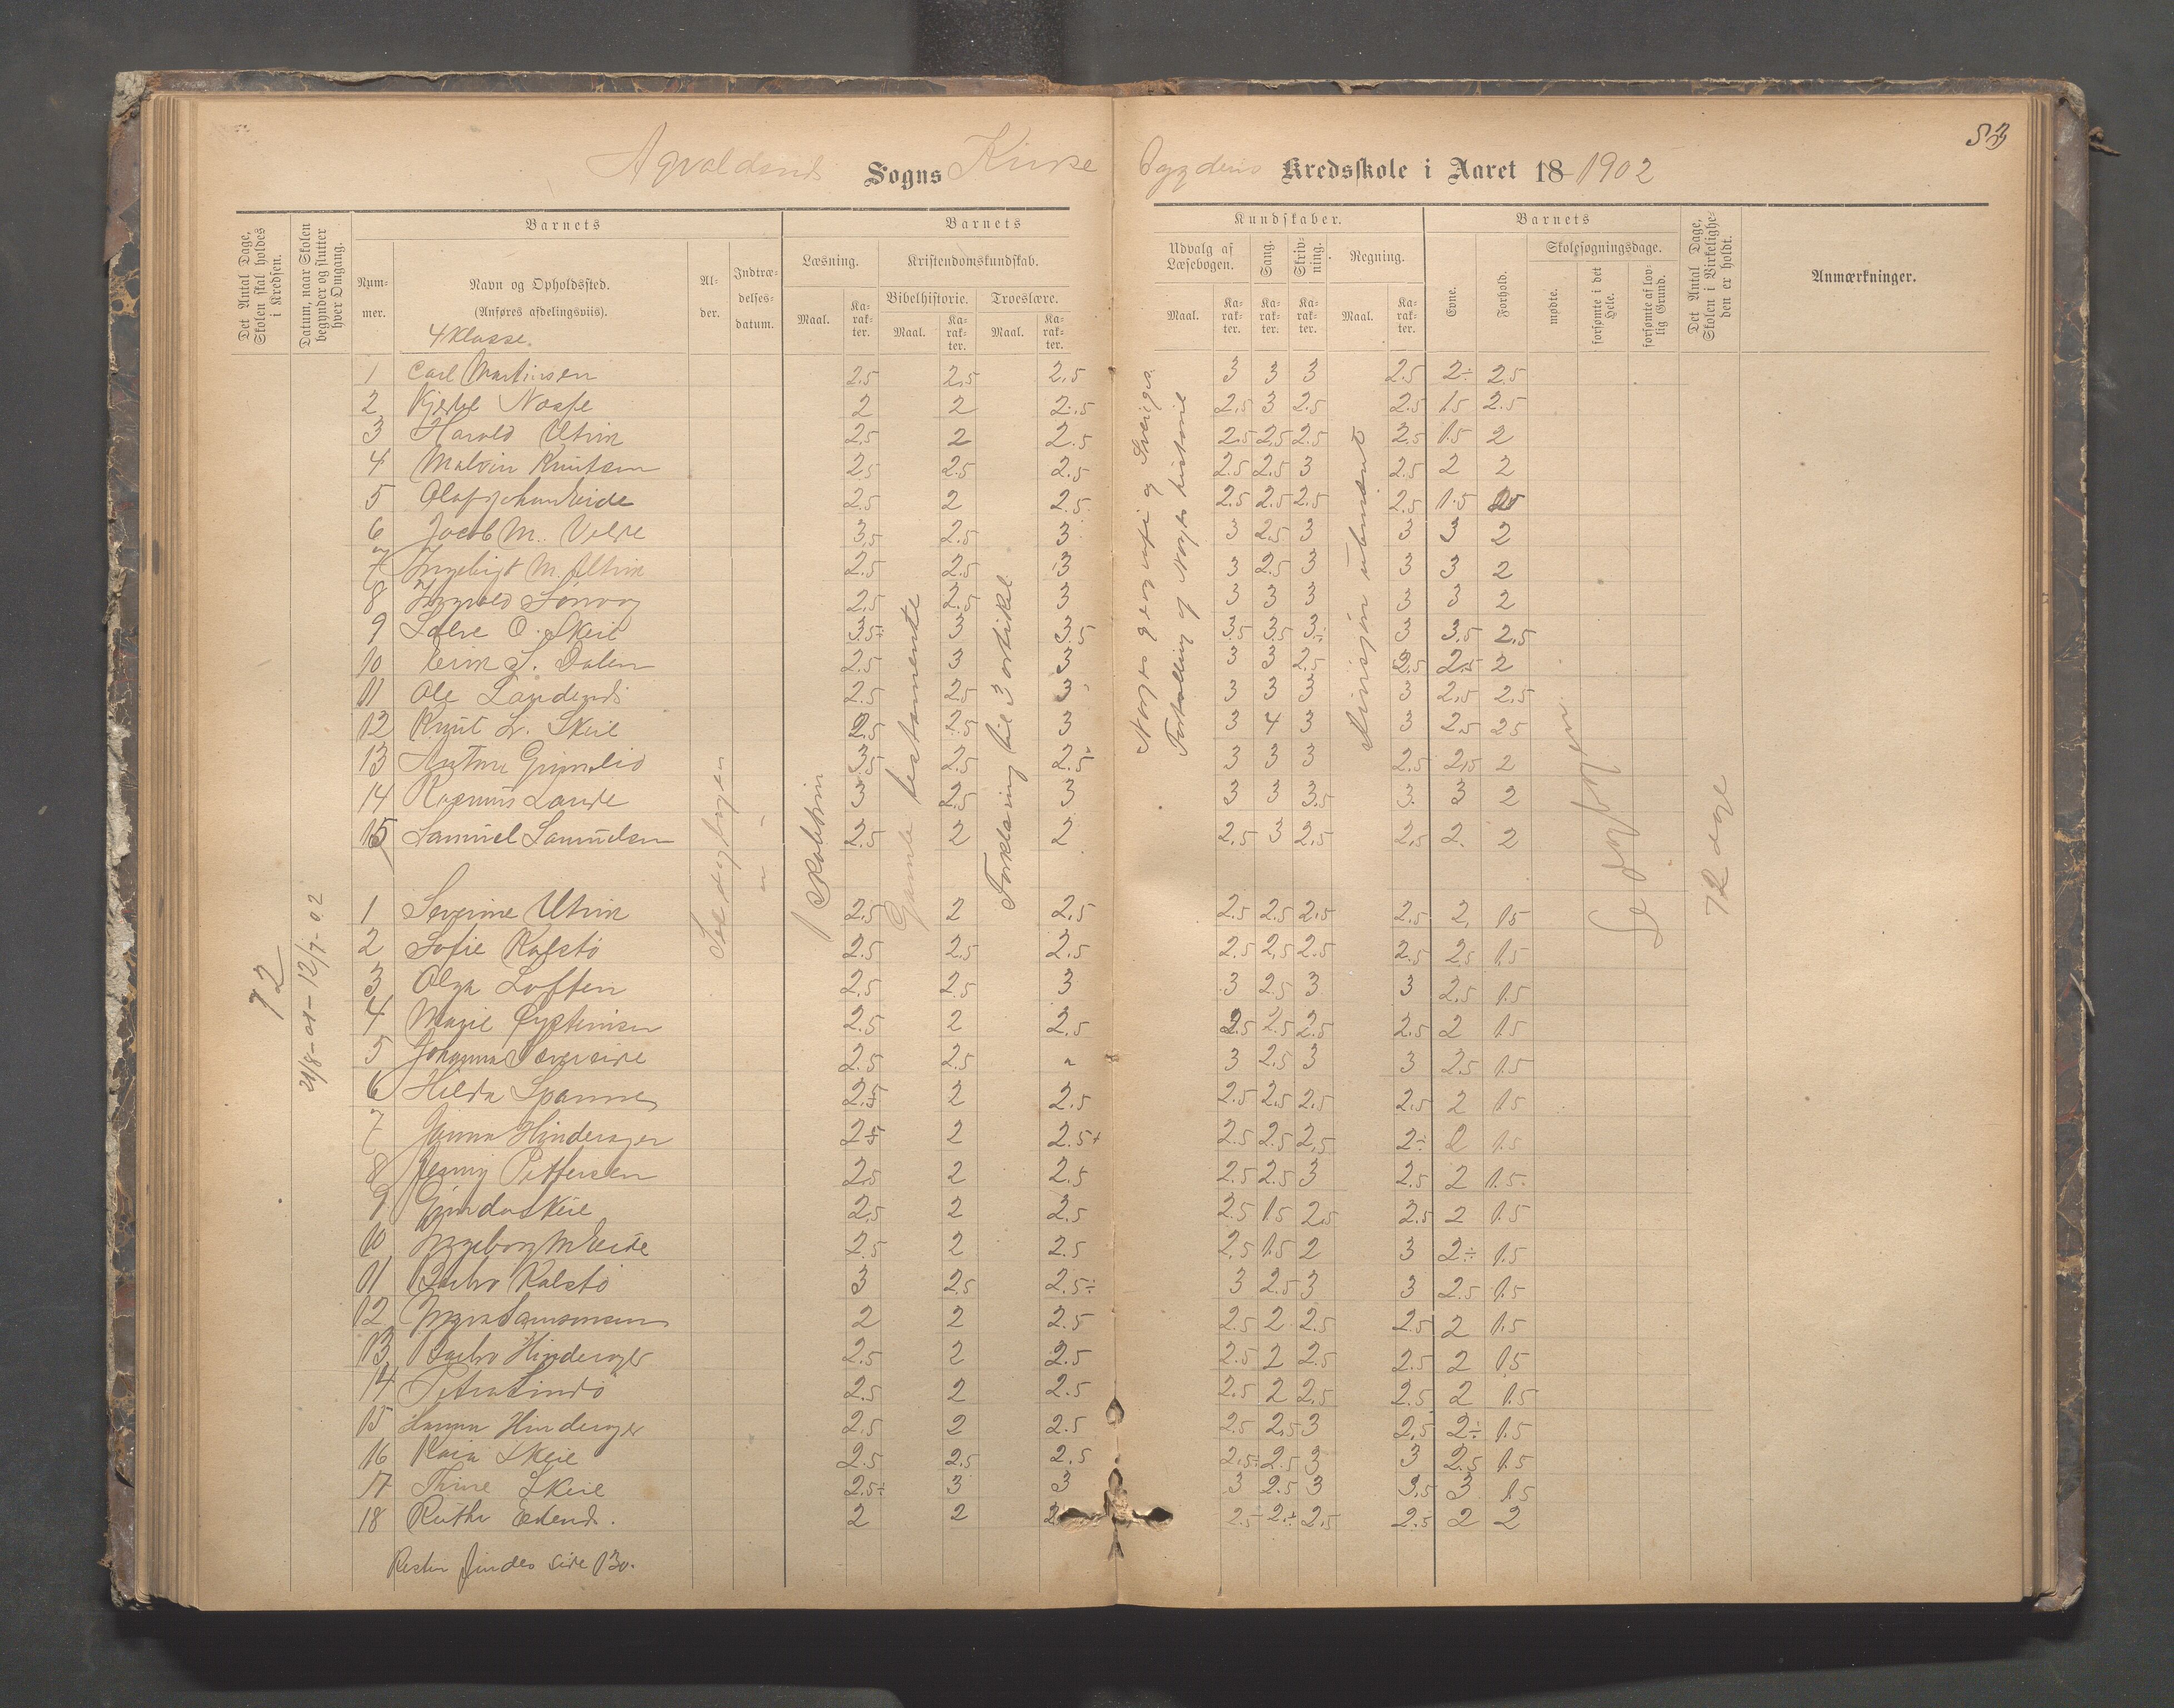 53
Sogns Kirke
Bygdens Kredsskole i Aaret 18 1902
Det Antal Dage, Skolen skal holdes i Kredsen.
Datum, naar Skolen begynder og slutter hver Omgang.
Barnets
Nummer.
Navn og Opholdssted.
(Anføres afdelingsviis).
4 Klasse.
Alder.
Indtrædelsesdatum.
Barnets
Læsning.
Maal.
Karakter.
Kristendomskundskab.
Bibelhistorie.
Maal.
Karakter.
Troeslære.
Maal.
Karakter.
Kundskaber.
Udvalg af Læsebogen.
Maal.
Karakter.
Sang.
Karakter.
Skrivning.
Karakter.
Regning.
Maal.
Karakter.
Barnets
Evne.
Forhold.
Skolesøgningsdage.
mødte.
forsømte i det Hele.
forsømte af lovlig Grund.
Det Antal Dage, Skolen i Virkeligheden er holdt.
Anmærkninger.
1 Carl Martinsen 2.5 2.5 2.5 3 3 3 2.5 2÷ 2.5
2 2 2 2.5 2.5 3 2.5 2.5 1.5 2.5
3 Harald Utvik 2.5 2 2.5 2.5 2.5 2.5 2.5 1.5 2
4 Malvin Knutsen 2.5 2.5 2.5 2.5 2.5 3 2.5 2 2
5 Olaf Johan Eide 2.5 2 2.5 2.5 2.5 2.5 2.5 1.5 1.5
6 Jacob M. Velde 3.5 2.5 3 3 2.5 3 3 3 2
7 Ingebrigt M. Utvik 2.5 2.5 3 3 2.5 3 3 3 2
8 2.5 2.5 3 3 3 3 3 3 2
9 O. Skeie 3.5÷ 3 3.5 3.5 3.5 3÷ 3 3.5 2.5
10 S. Dalen 2.5 3 3 3 3 2.5 2.5 2.5 2
11 Ole 2.5 2.5 3 3 3 3 3 2.5 2.5
12 Knut L. Skeie 2.5 2.5 3 3 4 3 3 2.5 2.5
13 3.5 2.5 2.5 3 3 3 2.5 2.5 2
14 Rasmus Lande 3 2.5 3 3 3 3.5 3 3 2
15 Samuel Samuelsen 2.5 2 2 2.5 3 2.5 2.5 2 2
1 Severine Utvik 2.5 2 2.5 2.5 2.5 2.5 2.5 2 1.5
2 Sofie Kalstø 2.5 2.5 2.5 2.5 2.5 2.5 2.5 2.5 1.5
3 Olga Loften 2.5 2.5 3 3 2.5 3 3 2.5 1.5
4 Marie Øysteinsen 2.5 2 2.5 2.5 2.5 2.5 2.5 2 1.5
5 Johanna 2.5 2.5 " 3 2.5 3 3 2.5 1.5
6 Hilda Spanne 2.5 2 2.5 2.5 2.5 2.5 2.5 2 1.5
7 Hinderager 2.5 2 2.5+ 2.5 2.5 2.5 2÷ 2 1.5
8 Jenny Pettersen 2.5 2 2.5 2.5 2.5 3 2.5 2 1.5
9 Skeie 2.5 2 2.5 2.5 1.5 2.5 2.5 2 1.5
10 Ingeborg M Eide 2.5 2 2.5 2.5 1.5 2 3 2÷ 1.5
11 Barbro Kalstø 3 2.5 2.5÷ 3 2.5 3 3 2.5 1.5
12 Samsonsen 2 2 2.5 2.5 2 2.5 2.5 2 1.5
13 Barbro Hinderager 2.5 2 2.5 2.5 2 2.5 2.5 2 1.5
14 Petra 2.5 2 2.5 2.5 2 2.5 2.5 2 1.5
15 Hanna Hinderager 2.5 2 2.5 2.5 2.5 3 2.5 2÷ 1.5
16 Kaia Skeie 2.5 2.5 2.5 2.5÷ 2.5 3 3 2.5 1.5
17 Thine Skeie 2.5÷ 3 3 3 2.5 3 3.5 3 1.5
18 Ruth Eeland. 2 2 2 2.5 2÷ 2.5 2.5 2 2
Resten findes side 130.
72
21/8-01 – 12/7-02
Se dagbogen
Gamle testamente
Forklaring til 3 artikel
Norges geografi og Sveriges.
Fortælling af Norges historie
Divisjon ubenævnt
Se dagbogen.
72 dage